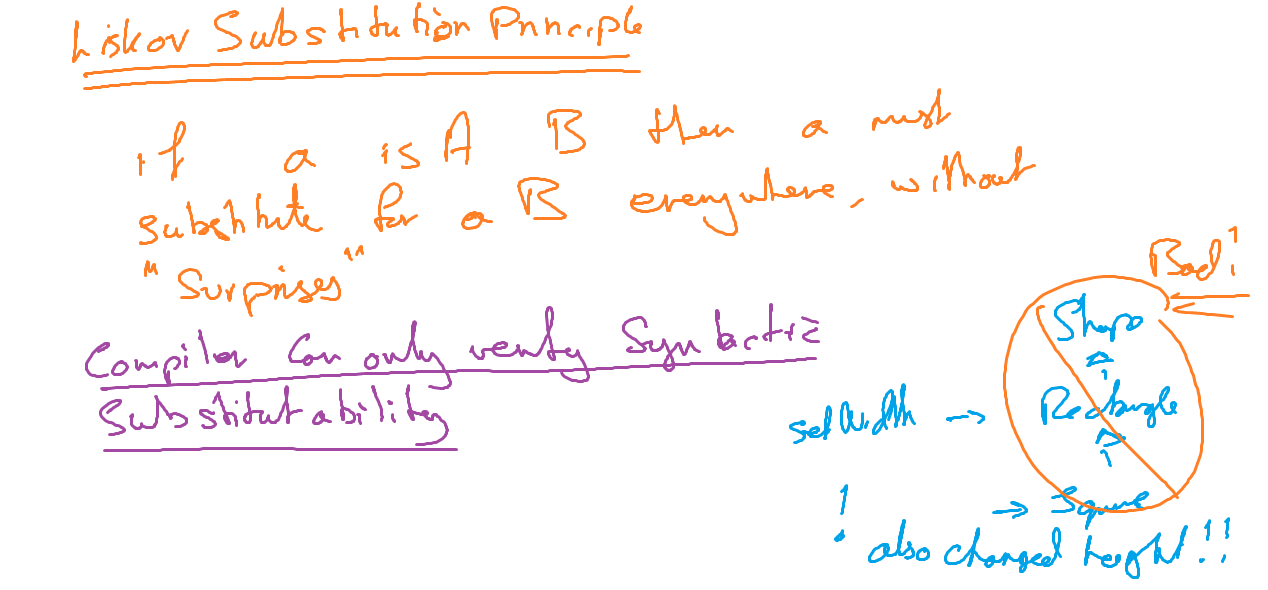 Liskov Substitution Principle
if a is A B then a must
substitute for a B everywhere, without
"Surprises"
Bad!
Compiler Can only verify Syntactic
Substitutability
Shape
Rectangle
setWidth →
→ Square
! also changed height!!